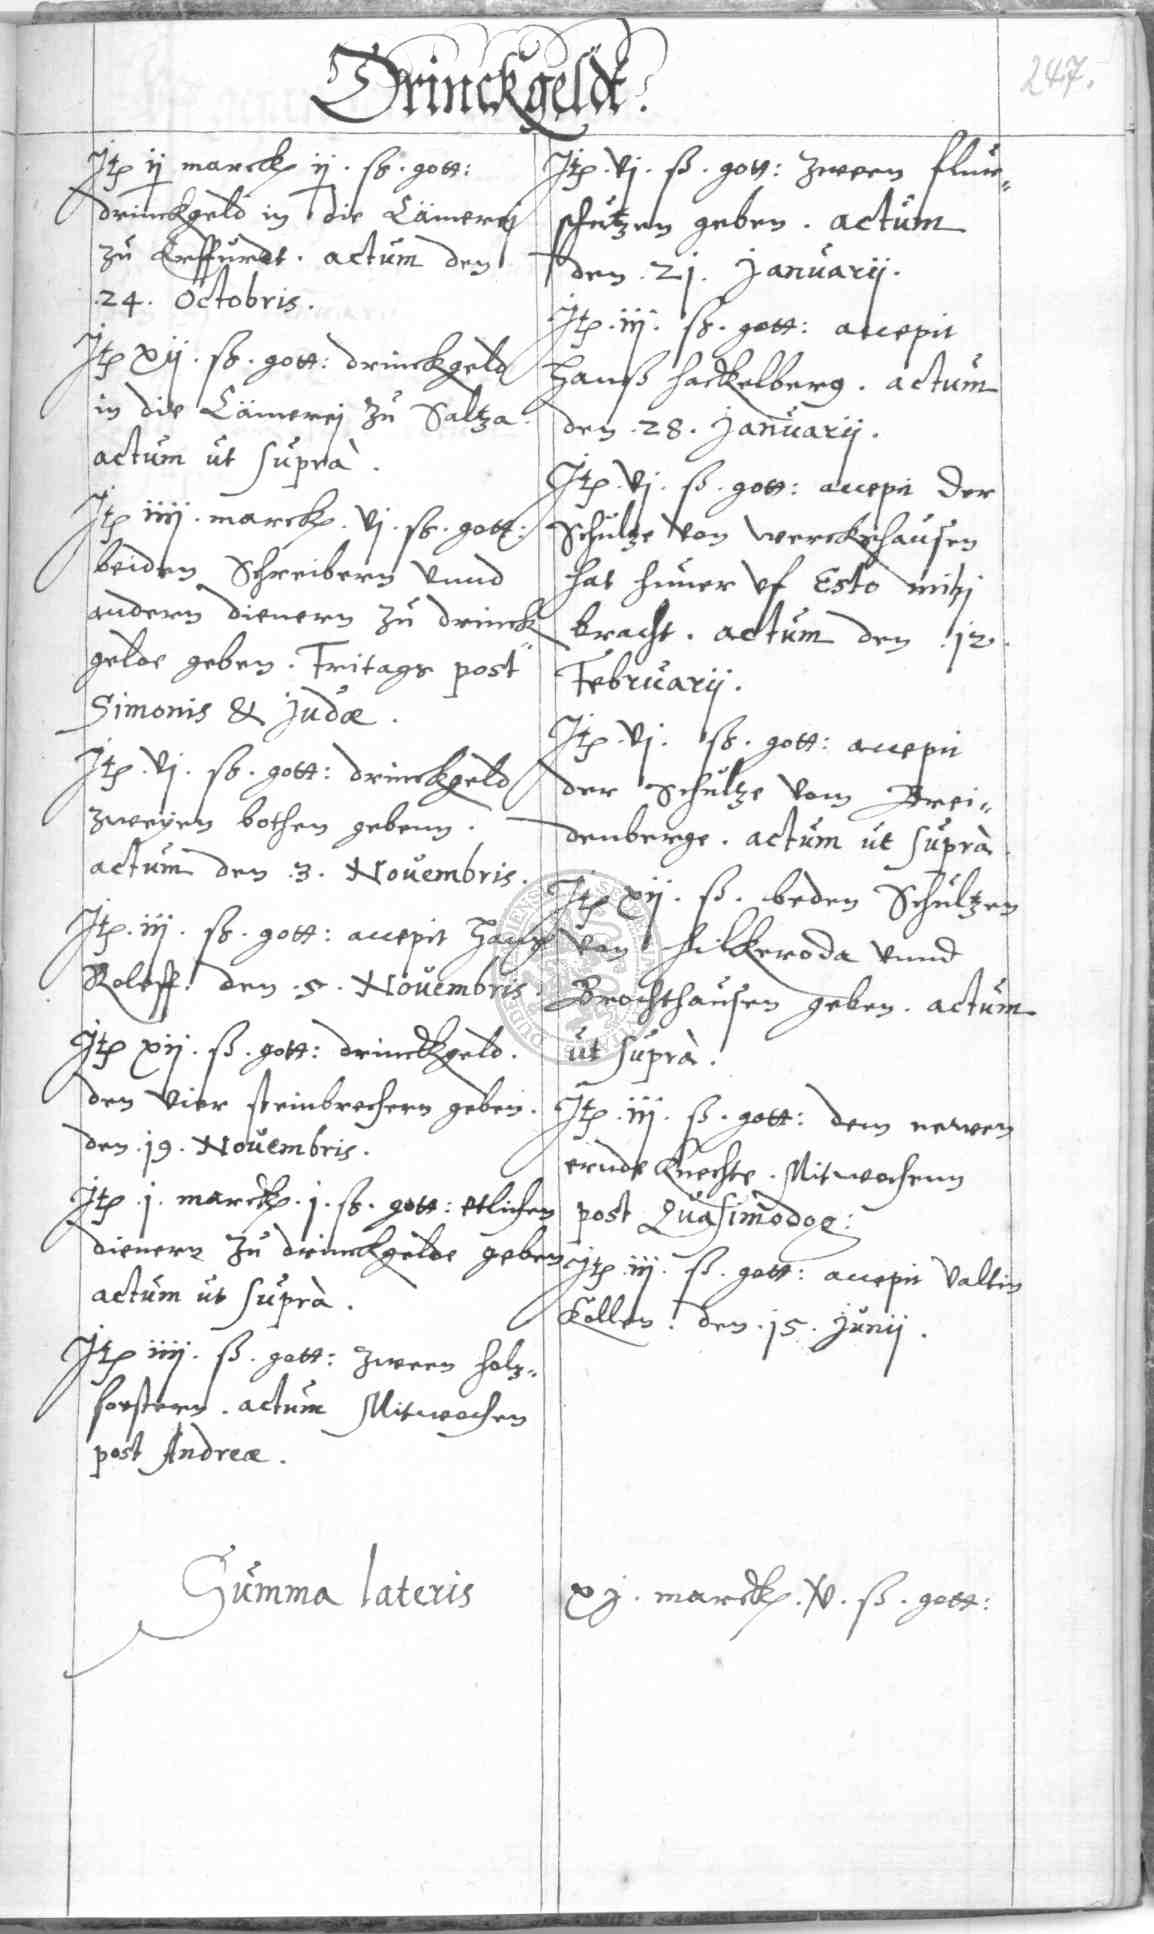 Drinckgeldt.
247.
Jtp ij marckp ij. sß. gott:
drinckgeld in die Cämerej
zu Erffurdt. actum den
.24. Octobris.
Jtp xij. sß. gott: drinckgeld
in die Cämerej zu Saltza.
actum ut suprà.
Jtp iiij. marckp. vj. sß. gott:
beiden Schreibern vnnd
andern dienern zu drinck
gelde geben. Fritags post
Simonis & Judæ.
Jtp. vj. sß. gott: drinckgeld
zweyen bothen gebenn.
actum den .3. Nouembris.
Jtp. iij. sß. gott: accepit Hans
Roleff. den .5. Nouembris.
Jtp xij. ß. gott: drinckgeld.
den vier steinbrechern geben.
den .19. Nouembris.
Jtp .j. marckp. j. sß. gott: etlichen
dienern zu drinckgelde geben
actum ut suprà.
Jtp iiij. ß. gott: zween holtz-
forstern. actum Mitwochen
post Andreæ.
Jtp. vj. ß. gott: zween flur-
schützen geben. actum
den .21. Januarij.
Jtp. iij. sß. gott: accepit
Hanß Hackelberg. actum
den .28. Januarij.
Jtp. vj. ß. gott: accepit der
Schultze von Werckshausen
hat huner vf Esto mihj
bracht. actum den .12.
Februarij.
Jtp. vj. sß. gott: accepit
der Schultze vom Brei-
denberge. actum ut suprà.
Jtp xij. ß. beden Schultzen
von Hilkeroda vnnd
Brochthausen geben. actum
ut suprà.
Jtp. iij. ß. gott: dem newen
ernde Knechte. Mitwochenn
post Quasimodog:
Jtp. iij. ß. gott: accepit Valtin
Kollen. den .15. Junij.
Summa lateris xj. marckp. v. ß. gott: